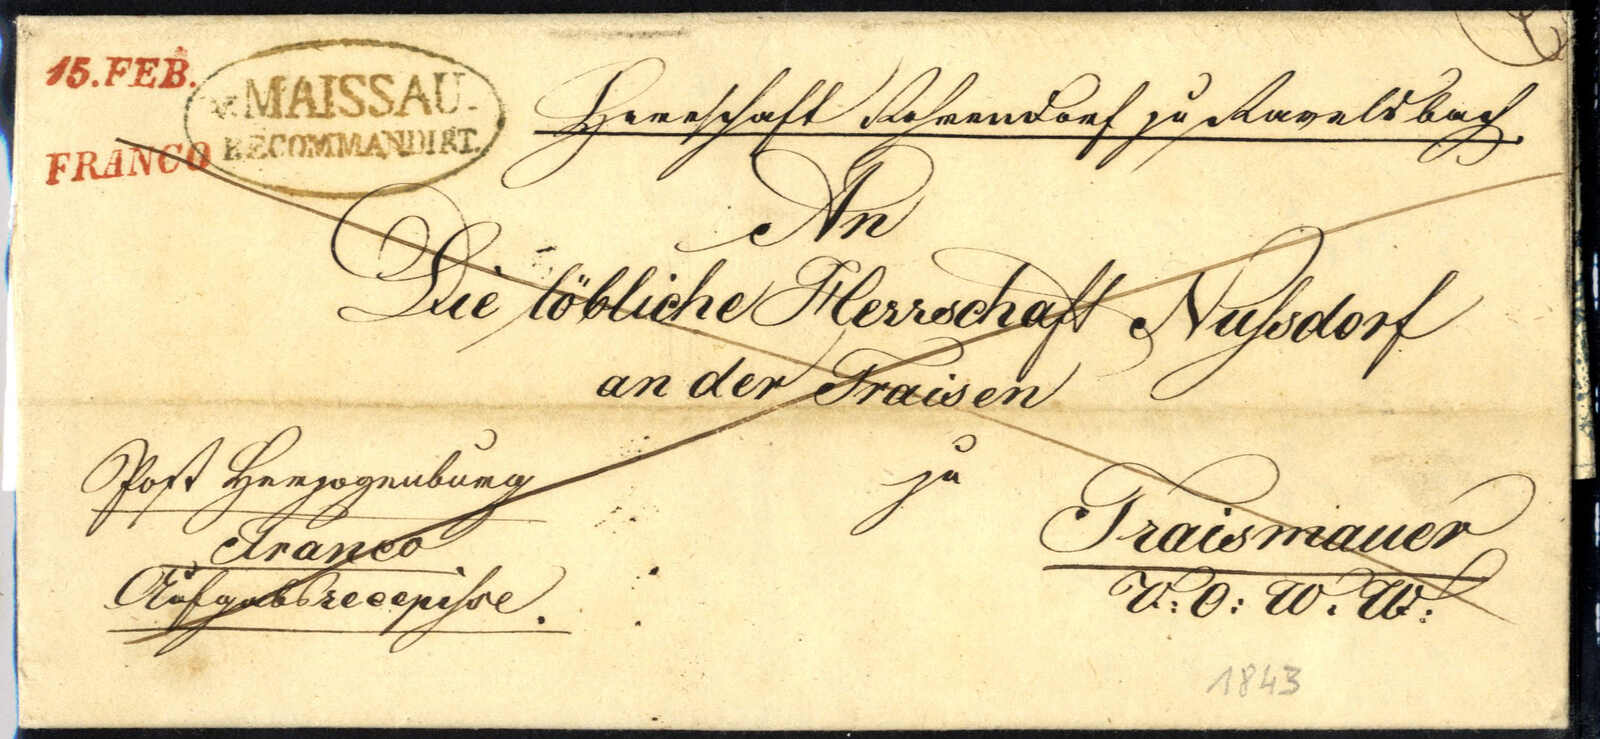 15. FEB.
v. MAISSAU.
RECOMMANDIRT.
FRANCO
Herrschaft Rohrendorf zu Ravelsbach.
An
Die löbliche Herrschaft Nußsdorf
an der Traisen
zu
Traismauer
V: O: W. W:
Post Herzogenburg
Franco
Aufgabsrecepisse.
1843